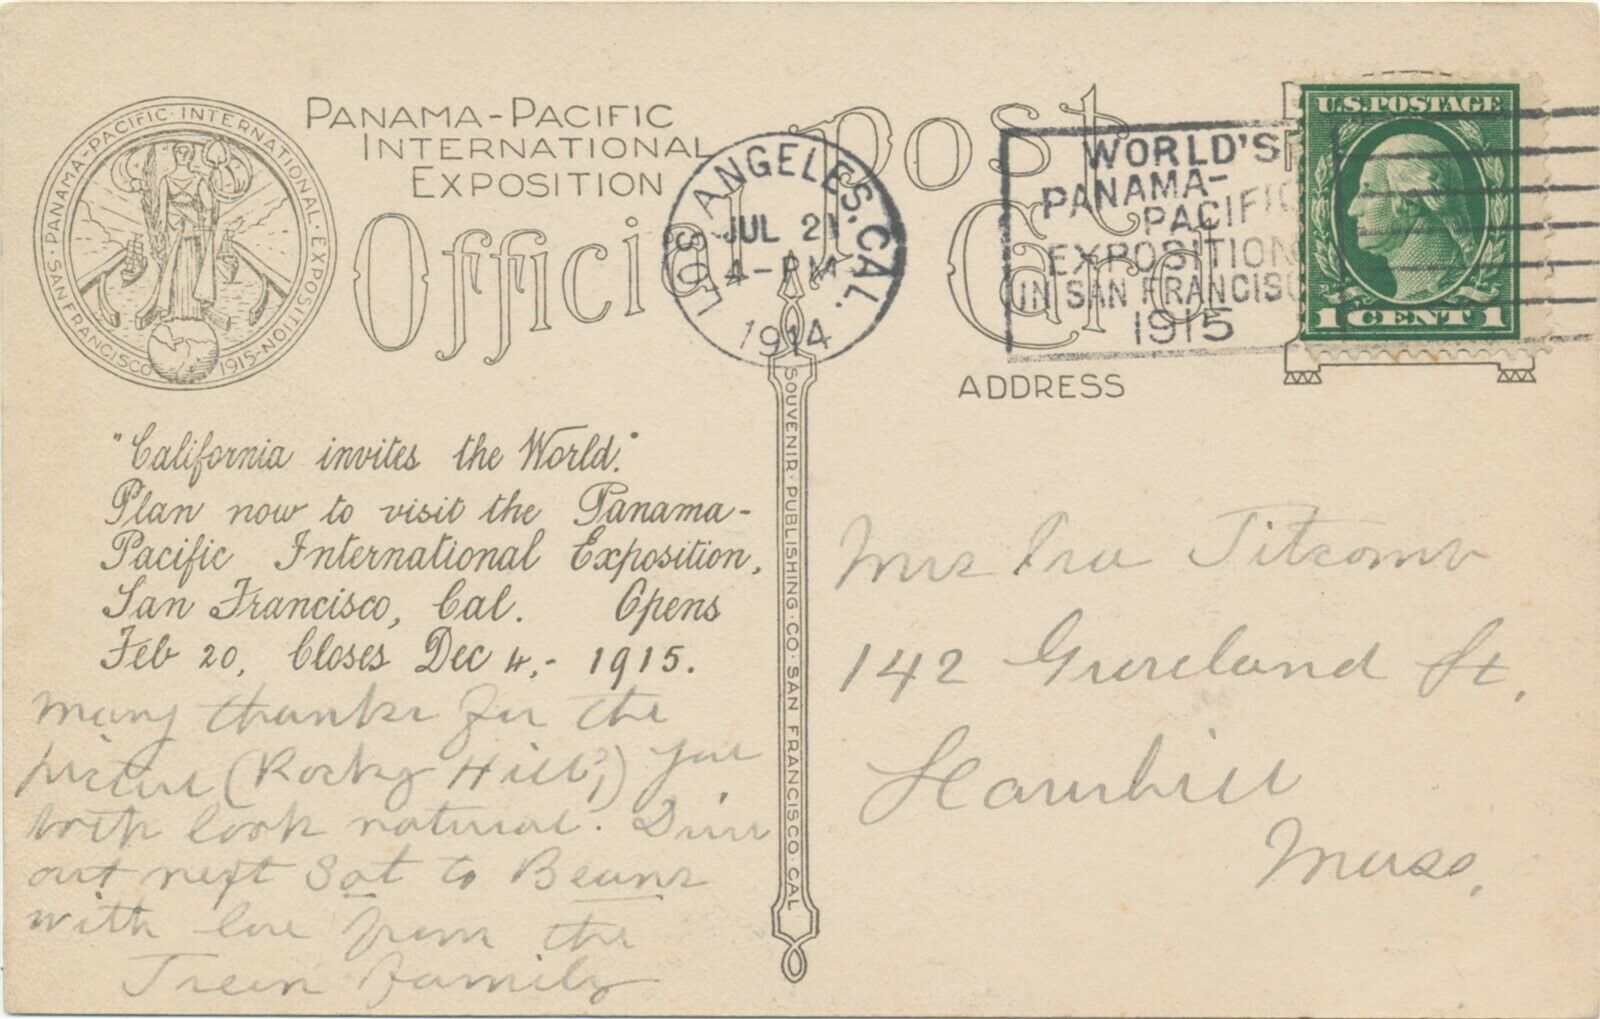 PANAMA-PACIFIC
INTERNATIONAL
EXPOSITION
Official Post Card
PANAMA-PACIFIC·INTERNATIONAL·EXPOSITION·
·SAN FRANCISCO 1915·
LOS ANGELES. CAL.
JUL 21
4-PM
1914
WORLD'S
PANAMA-
PACIFIC
EXPOSITION
IN SAN FRANCISC
1915
U.S. POSTAGE
1 CENT 1
ADDRESS
"California invites the World."
Plan now to visit the Panama-
Pacific International Exposition,
San Francisco, Cal. Opens
Feb 20, Closes Dec 4,- 1915.
Many thanks for the
picture (Rocky Hill?) You
both look natural. Din
out next Sat to Beans
with love from the
Family
SOUVENIR·PUBLISHING·CO·SAN FRANCISCO·CAL
Mrs Ira Titcomb
142 St.
Haverhill
Mass.